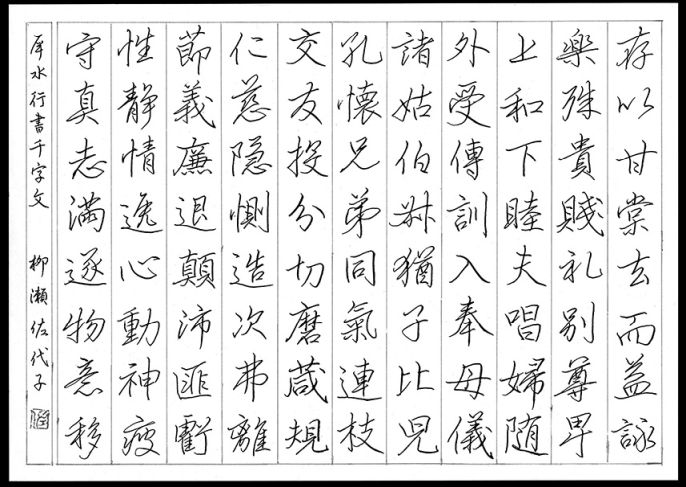 存以甘棠去而益詠
樂殊貴賤礼別尊卑
上和下睦夫唱婦随
外受傳訓入奉母儀
諸姑伯叔猶子比児
孔懐兄弟同氣連枝
交友投分切磨箴規
仁慈隠惻造次弗離
節義廉退顛沛匪虧
性静情逸心動神疲
守真志満逐物意移
行書千字文
柳瀬佐代子